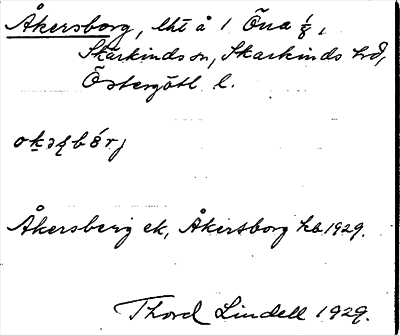 Åkersborg, lht å 1 Öna ⅛,
Skärkinds sn, Skärkinds hd,
Östergötl l.
Åkersberg ek, Åkersborg kb 1929.
Thord Lindell 1929.